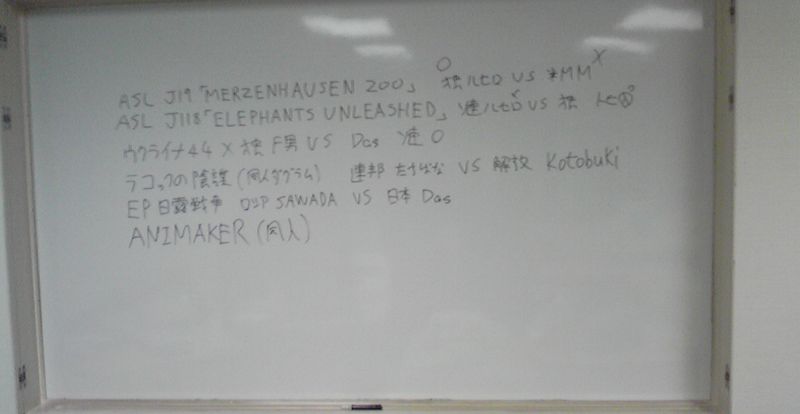 ASL J19「MERZENHAUSEN ZOO」 ○ 独 ルセロ VS 米MM ×
ASL J118「ELEPHANTS UNLEASHED」 ソ連 ルセロ × VS 独 ○
ウクライナ44 × 独 F男 VS Das ソ連 ○
ラコックの陰謀(同人ダグラム) 連邦 たちばな VS 解放 Kotobuki
EP日露戦争 ロシア SAWADA VS 日本 Das
ANIMAKER(同人)